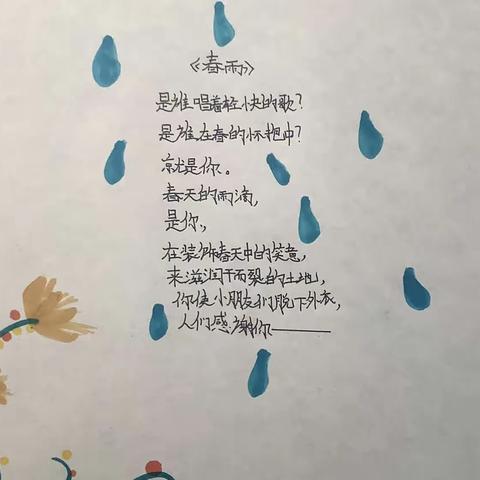 《春雨》
是谁唱着轻快的歌？
是谁在春的怀抱中？
就是你。
春天的雨滴，
是你，
在装饰春天中的笑意，
来滋润干而裂的土地，
你使小朋友们脱下外衣，
人们感谢你———